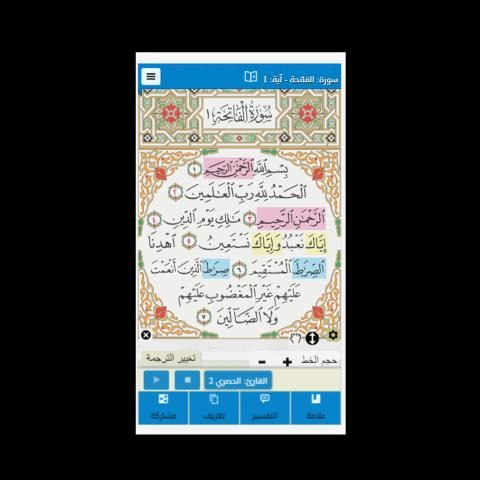 سورة: الفاتحة - آية: 1
سُورَةُ الْفَاتِحَةِ ١
بِسْمِ اللَّهِ الرَّحْمَٰنِ الرَّحِيمِ ١
الْحَمْدُ لِلَّهِ رَبِّ الْعَالَمِينَ ٢
الرَّحْمَٰنِ الرَّحِيمِ ٣ مَالِكِ يَوْمِ الدِّينِ ٤
إِيَّاكَ نَعْبُدُ وَإِيَّاكَ نَسْتَعِينُ ٥ اهْدِنَا
الصِّرَاطَ الْمُسْتَقِيمَ ٦ صِرَاطَ الَّذِينَ أَنْعَمْتَ
عَلَيْهِمْ غَيْرِ الْمَغْضُوبِ عَلَيْهِمْ
وَلَا الضَّالِّينَ ٧
حجم الخط + - تغيير الترجمة
القارئ: الحصري 2
علامة التفسير تعريف مشاركة